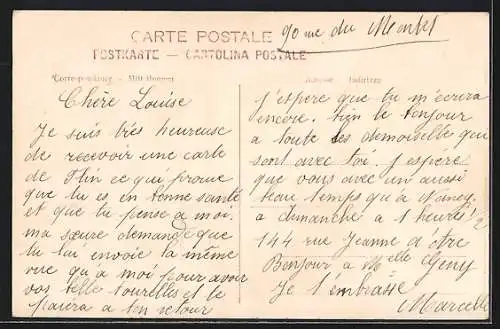 CARTE POSTALE
90 rue du Montet
POSTKARTE — CARTOLINA POSTALE
Chère Louise
Je suis très heureuse
de recevoir une carte
de Flin ce qui prouve
que tu es en bonne santé
et que tu pense a moi.
ma sœure demande que
tu lui envoie la même
vue qu'a moi pour avoir
vos belle tourelles et le
paiera a ton retour
J'espère que tu m'écrira
encore. bien le bonjour
a toute les demoiselle qui
sont avec toi. J'espère
que vous avec un aussi
beau temps qu'a Nancy.
a dimanche a 1 heures ½
144 rue Jeanne d'Arc
Bonjour a Melle Geny
Je t'embrasse
Marcelle